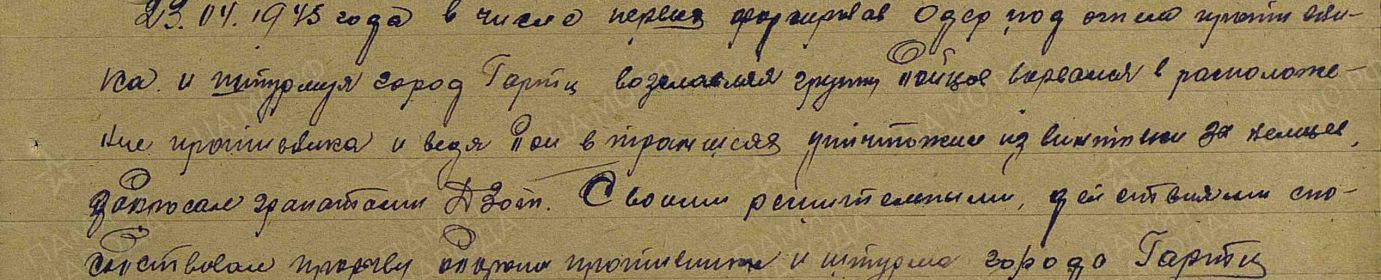 23.04.1945 года в числе первых форсировал Одер под огнем противни-
ка. и штурмуя город Гартц возглавляя группу бойцов ворвался в расположе-
ние противника и ведя бои в траншеях уничтожил из винтовки за немцев,
забросал гранатами ДЗот. Своими решительными, действиями спо-
собствовал прорыву обороны противника и штурма города Гартц